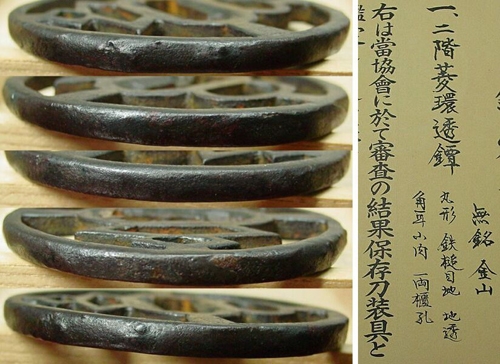 一、二階菱環透鐔
無銘 金山
丸形 鉄槌目地 地透
角耳小肉 両櫃孔
右は當協會に於て審査の結果保存刀装具と